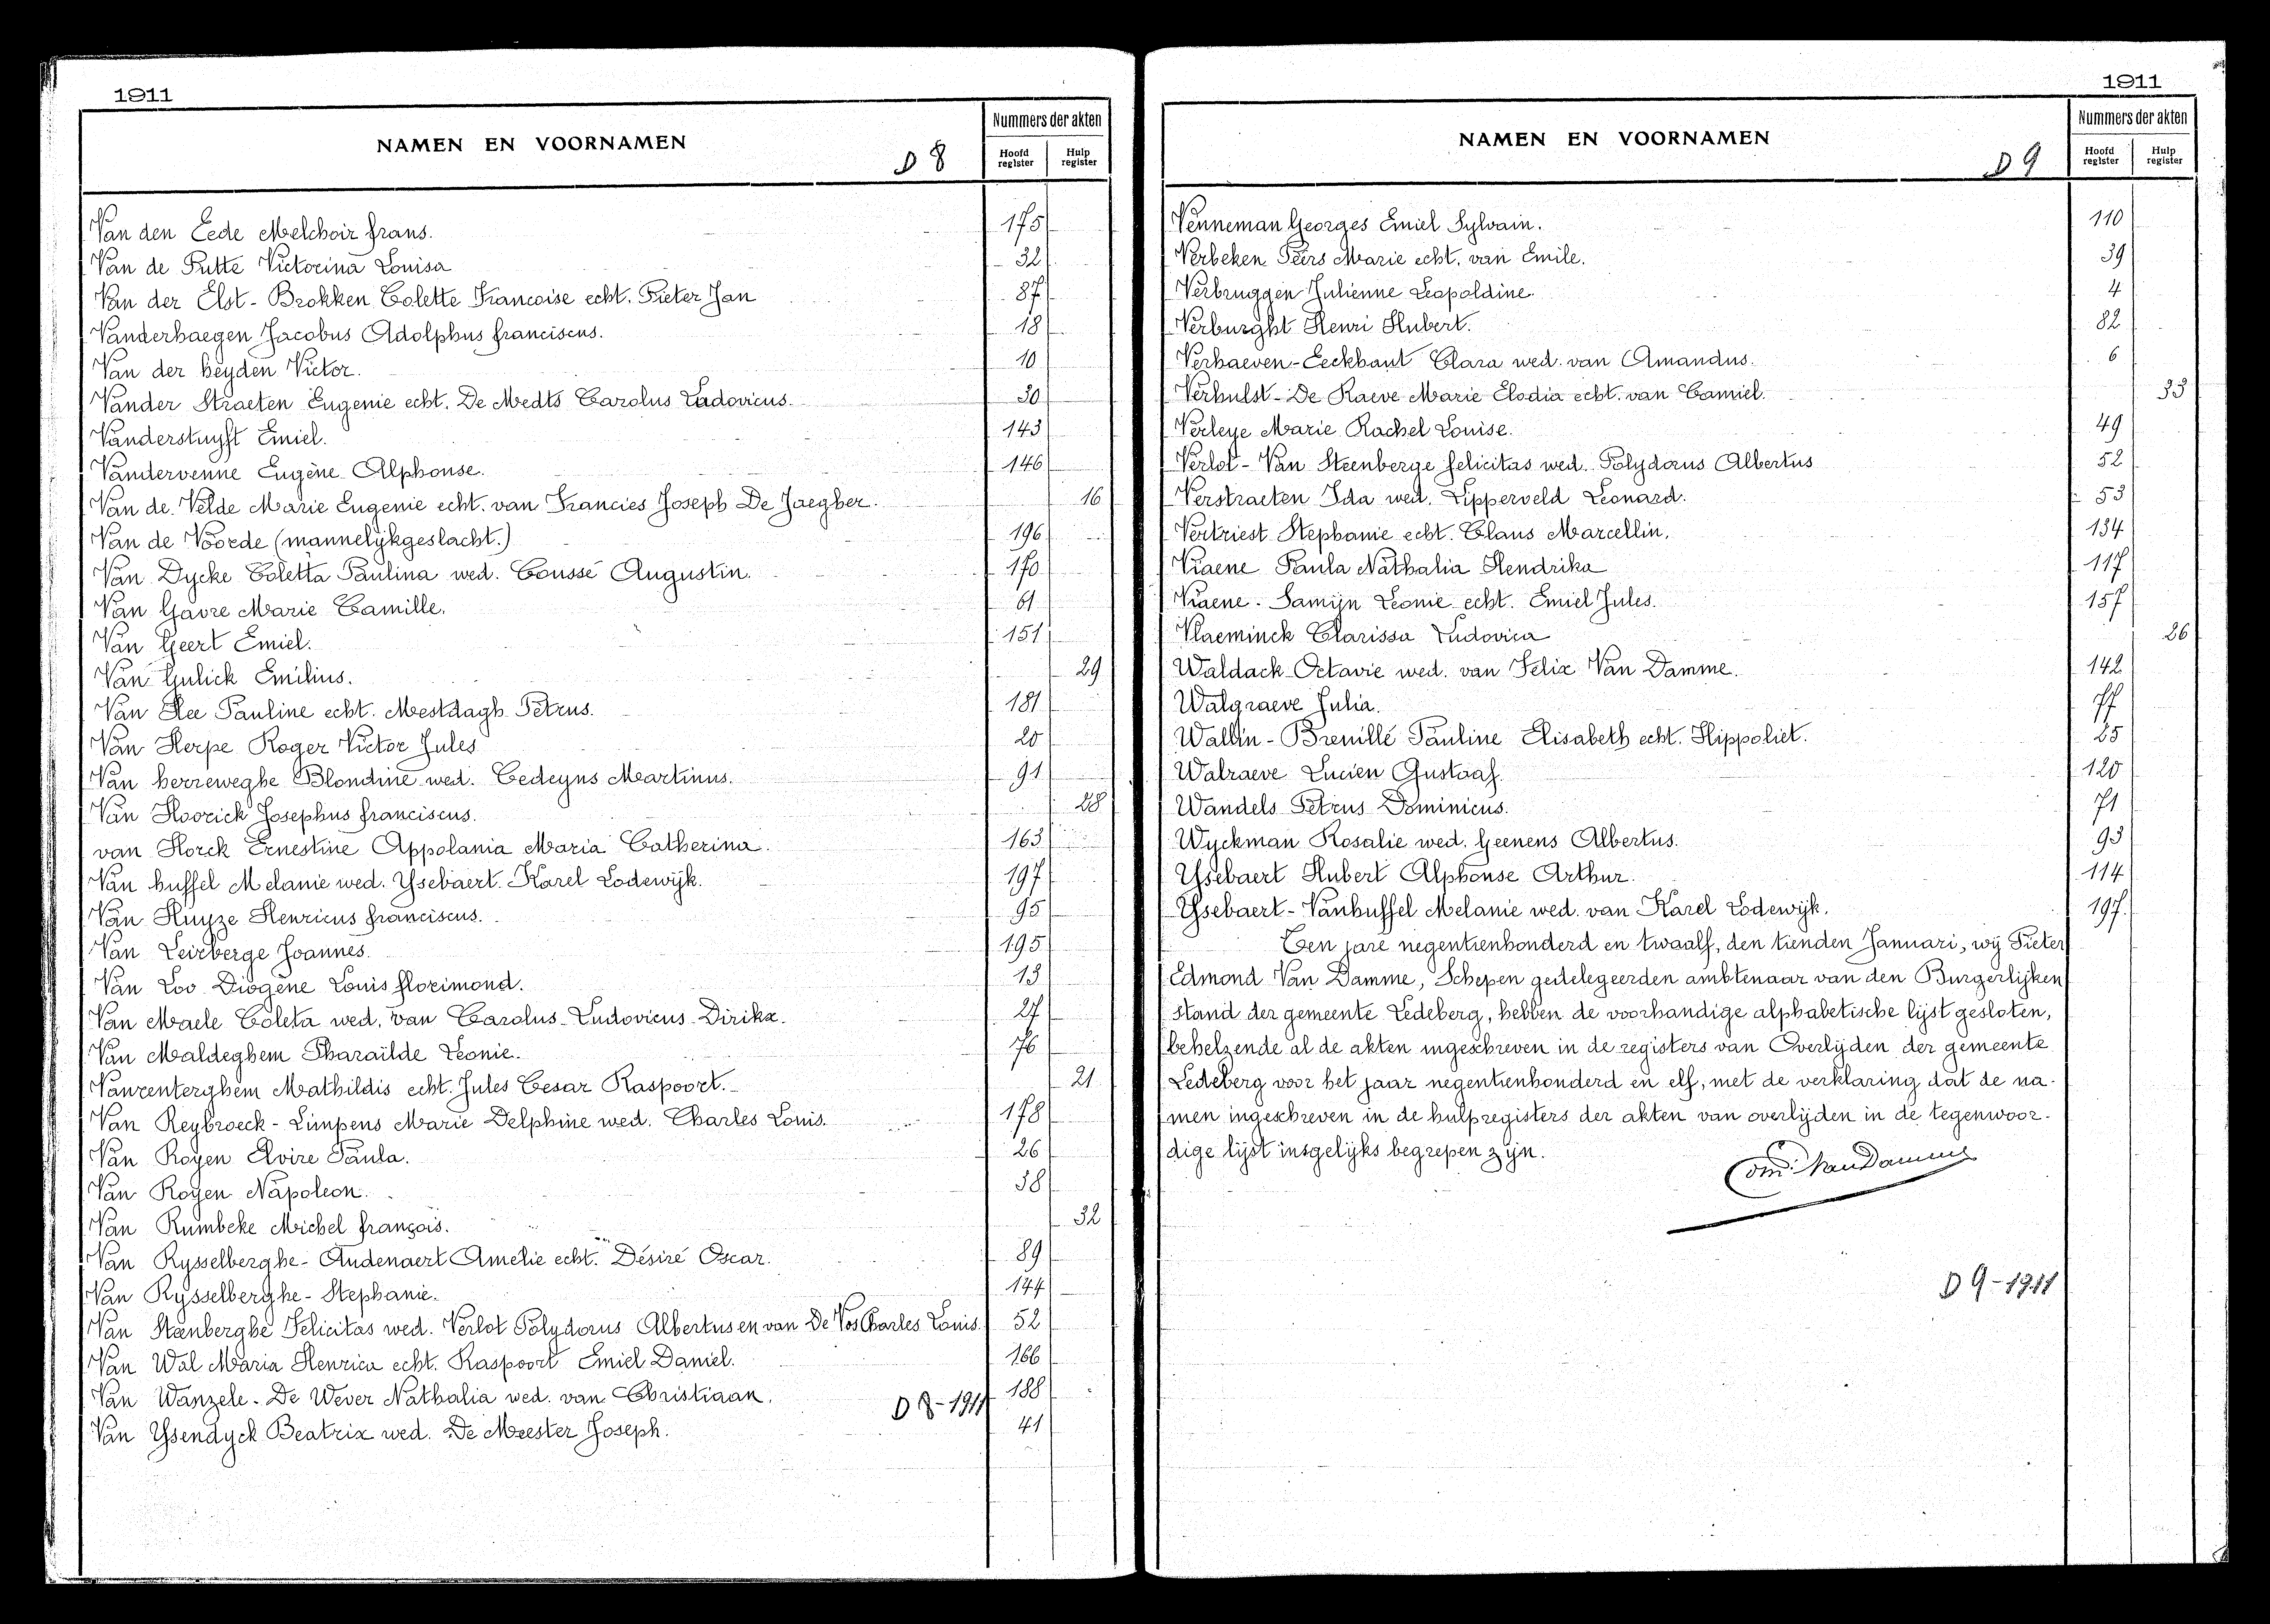 1911
NAMEN EN VOORNAMEN
D 8
Nummers der akten
Hoofd register
Hulp register
Van den Eede Melchoir frans. 175
Van de Putte Victorina Louisa 32
Van der Elst - Brokken Colette Francoise echt. Pieter Jan 87
Vanderhaegen Jacobus Adolphus franciscus. 18
Van der heyden Victor. 10
Vander Straeten Eugenie echt. De Medts Carolus Ludovicus. 30
Vanderstuyft Emiel. 143
Vandervenne Eugène Alphonse. 146
Van de Velde Marie Eugenie echt. van Francies Joseph De Jaegher. 16
Van de Voorde (mannelijkgeslacht.) 196
Van Dycke Coletta Paulina wed. Coussé Augustin. 170
Van Gavre Marie Camille. 61
Van Geert Emiel. 151
Van Gulick Emilius. 29
Van Hee Pauline echt. Mestdagh Petrus. 181
Van Herpe Roger Victor Jules 20
Van herreweghe Blondine wed. Cedeyns Martinus. 91
Van Hoorick Josephus franciscus. 28
van Horck Ernestine Appolania Maria Catherina. 163
Van huffel Melanie wed. Ysebaert Karel Lodewijk. 197
Van Huyze Henricus franciscus. 95
Van Leirberge Joannes. 195
Van Loo Diogène Louis florimond. 13
Van Maele Coleta wed. van Carolus Ludovicus Dirikx. 27
Van Maldeghem Pharaïlde Leonie. 76
Vanrenterghem Mathildis echt. Jules Cesar Raspoort. 21
Van Reybroeck - Limpens Marie Delphine wed. Charles Louis. 178
Van Royen Elvire Paula. 26
Van Royen Napoleon. 38
Van Rumbeke Michel françois. 32
Van Rysselberghe - Audenaert Amelie echt. Désiré Oscar. 89
Van Rysselberghe - Stephanie. 144
Van Steenberghe Felicitas wed. Verlot Polydorus Albertus en van De Vos Charles Louis. 52
Van Wal Maria Henrica echt. Raspoort Emiel Daniel. 166
Van Wanzele - De Wever Nathalia wed. van Christiaan. 188
D 8-1911
Van Ysendyck Beatrix wed. De Meester Joseph. 41
1911
NAMEN EN VOORNAMEN
D 9
Nummers der akten
Hoofd register
Hulp register
Venneman Georges Emiel Sylvain. 110
Verbeken Peirs Marie echt. van Emile. 39
Verbruggen Julienne Leopoldine. 4
Verburght Henri Hubert. 82
Verhaeven-Eeckhaut Clara wed. van Amandus. 6
Verhulst - De Raeve Marie Elodia echt. van Camiel. 33
Verleye Marie Rachel Louise. 49
Verlot - Van Steenberge felicitas wed. Polydorus Albertus 52
Verstraeten Ida wed. Lipperveld Leonard. 53
Vertriest Stephanie echt. Claus Marcellin. 134
Viaene Paula Nathalia Hendrika 117
Viaene - Samijn Leonie echt. Emiel Jules. 157
Vlaeminck Clarissa Ludovica 26
Waldack Octavie wed. van Felix Van Damme. 142
Walgraeve Julia. 77
Wallin - Brenillé Pauline Elisabeth echt. Hippoliet. 25
Walraeve Lucien Gustaaf. 120
Wandels Petrus Dominicus. 71
Wyckman Rosalie wed. Geenens Albertus. 93
Ysebaert Hubert Alphonse Arthur. 114
Ysebaert - Vanhuffel Melanie wed. van Karel Lodewijk. 197
Ten jare negentienhonderd en twaalf, den tienden Januari, wij Pieter
Edmond Van Damme, Schepen gedelegeerden ambtenaar van den Burgerlijken
stand der gemeente Ledeberg, hebben de voorhandige alphabetische lijst gesloten,
behelzende al de akten ingeschreven in de registers van Overlijden der gemeente
Ledeberg voor het jaar negentienhonderd en elf, met de verklaring dat de na-
men ingeschreven in de hulpregisters der akten van overlijden in de tegenwoor-
dige lijst insgelijks begrepen zijn.
VanDamme
D 9-1911